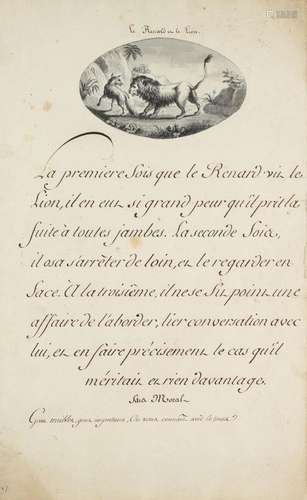 Le Renard et le Lion.
La premiere fois que le Renard vit le
Lion, il en eut si grand peur qu'il prit la
fuite à toutes jambes. La seconde fois,
il osa s'arrêter de loin, et le regarder en
face. A la troisième, il ne se fit point une
affaire de l'aborder, lier conversation avec
lui, et en faire précisement le cas qu'il
méritait et rien davantage.
Sens Moral